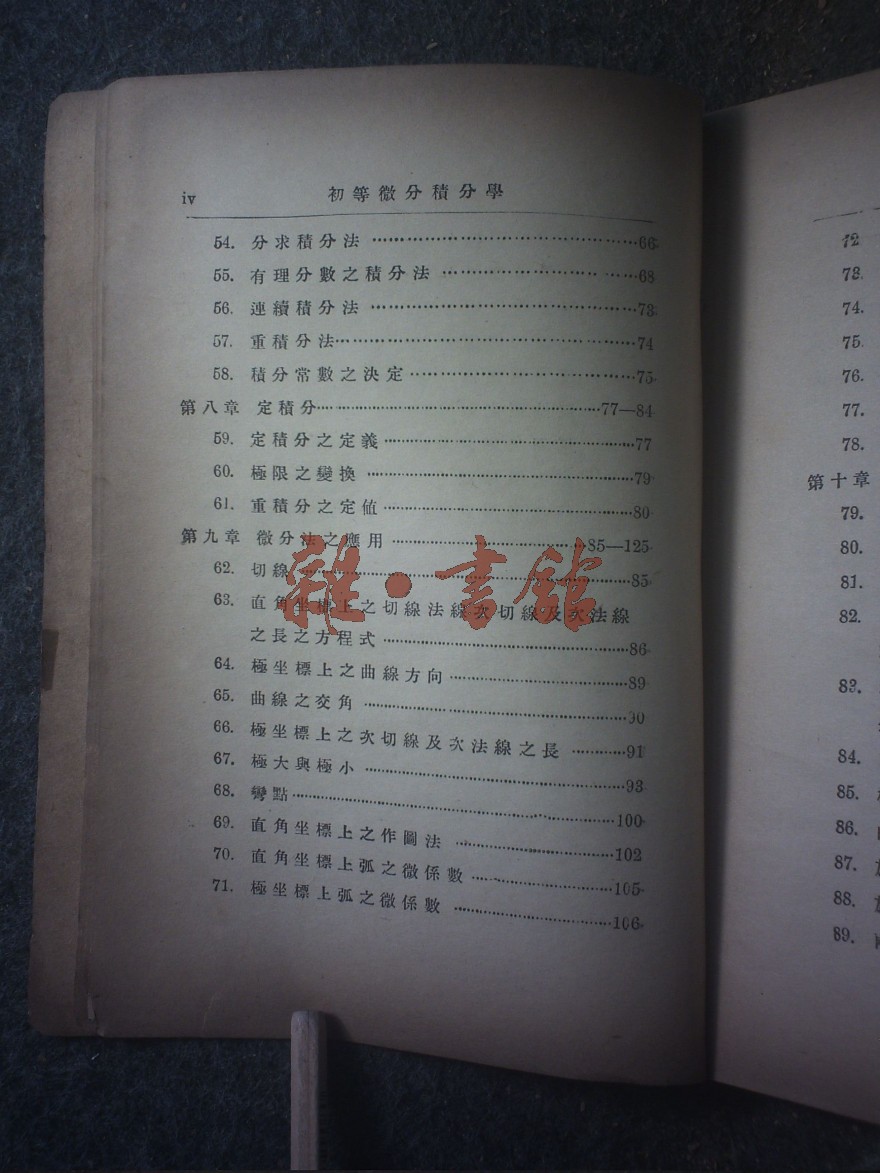 iv 初等微分積分學
54. 分求積分法 66
55. 有理分數之積分法 68
56. 連續積分法 73
57. 重積分法 74
58. 積分常數之決定 75
第八章 定積分 77—84
59. 定積分之定義 77
60. 極限之變換 79
61. 重積分之定値 80
第九章 微分法之應用 85—125
62. 切線 85
63. 直角坐標上之切線法線次切線及次法線
之長之方程式 86
64. 極坐標上之曲線方向 89
65. 曲線之交角 90
66. 極坐標上之次切線及次法線之長 91
67. 極大與極小 93
68. 彎點 100
69. 直角坐標上之作圖法 102
70. 直角坐標上弧之微係數 105
71. 極坐標上弧之微係數 106
雜·書館
72
73.
74.
75.
76.
77.
78.
第十章
79.
80.
81.
82.
83.
84.
85.
86.
87.
88.
89.